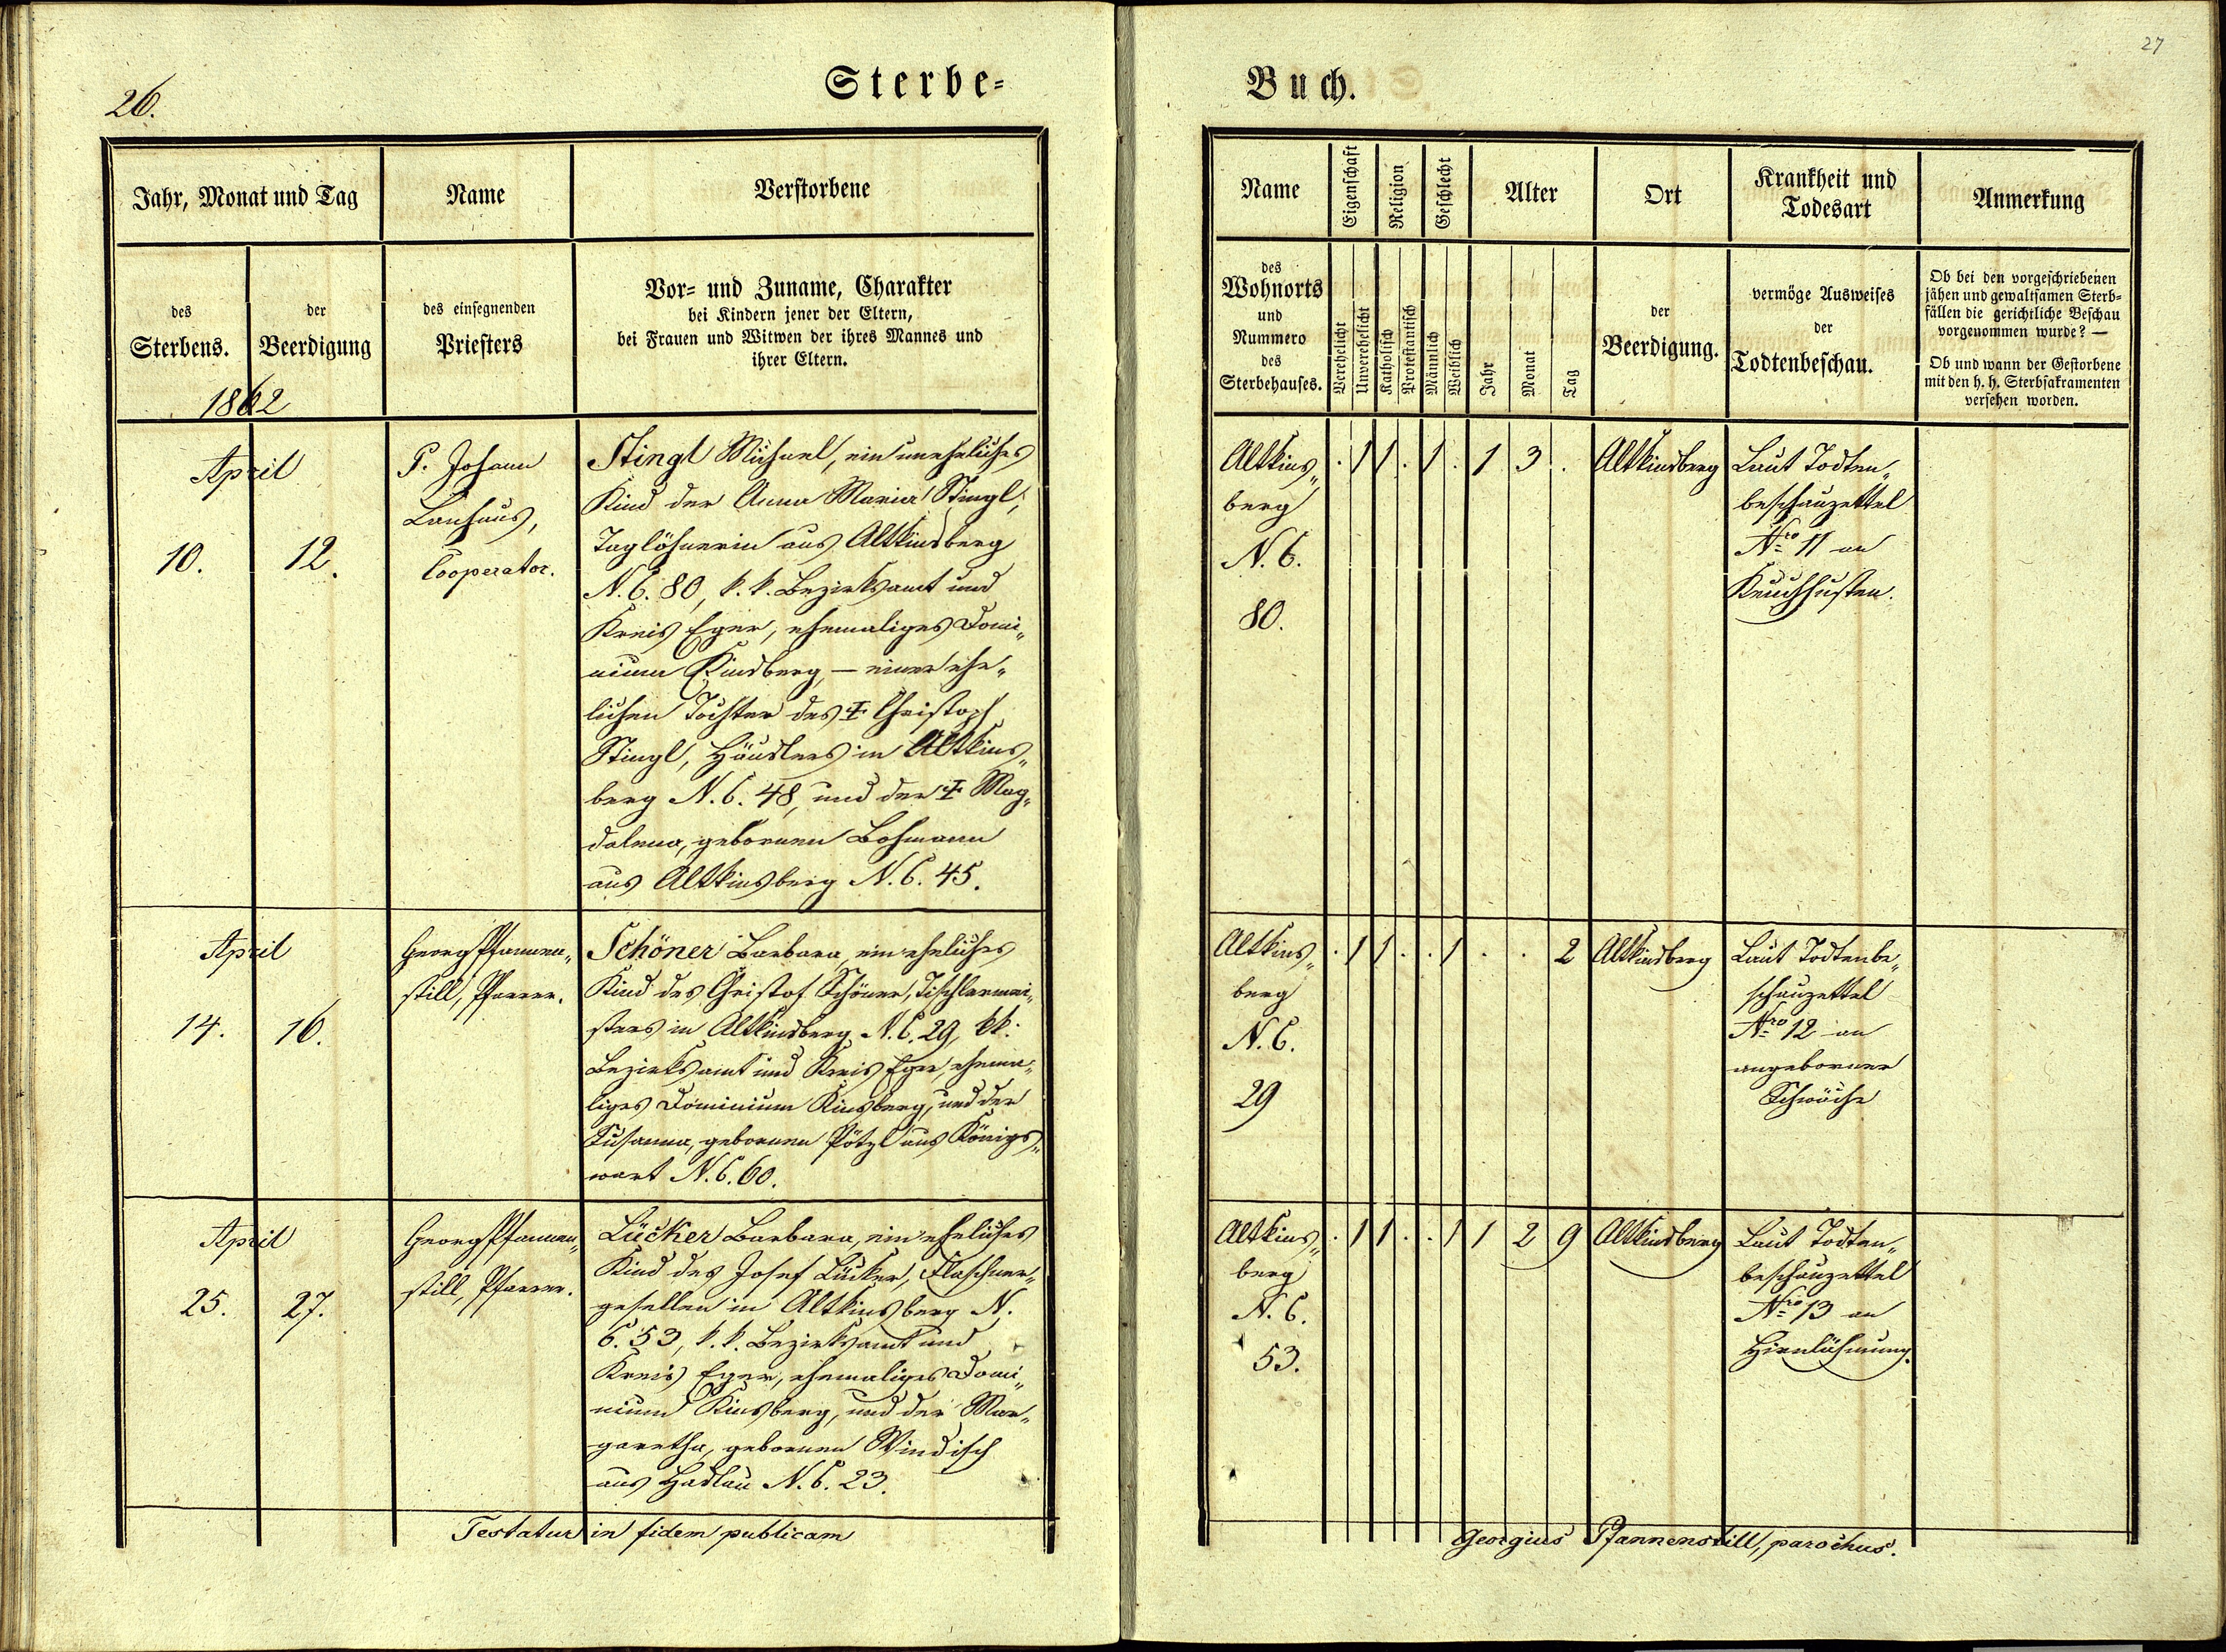 26.
Sterbe-
Jahr, Monat und Tag
Name
Verstorbene
des
Sterbens.
der
Beerdigung
des einsegnenden
Priesters
Vor- und Zuname, Charakter
bei Kindern jener der Eltern,
bei Frauen und Witwen der ihres Mannes und
ihrer Eltern.
1862
April
10.
12.
P. Johann
Cooperator.
Stingl Michael, ein uneheliches
Kind der Anna Maria Stingl,
Taglöhnerin aus Altkinsberg
N. C. 80, k. k. Bezirksamt und
Kreis Eger, ehemaliges Domi„
nium Kinsberg, — einer ehe„
lichen Tochter des † Christoph
Stingl, Häuslers in Altkins„
berg N. C. 48, und der † Mag„
dalena, gebornen Lohmann
aus Altkinsberg N. C. 45.
April
14.
16.
Georg Pfannen„
still, Pfarrer.
Schöner Barbara, ein eheliches
Kind des Christof Schöner, Tischlermei„
sters in Altkinsberg N. C. 29, kk.
Bezirksamt und Kreis Eger, ehema„
liges Dominium Kinsberg, und der
Susanna, gebornen Pötzl aus Königs„
wart N. C. 60.
April
25.
27.
Georg Pfannen„
still, Pfarrer.
Lücker Barbara, ein eheliches
Kind des Josef Lücker, Flaschner„
gesellen in Altkinsberg N.
C. 53, k. k. Bezirksamt und
Kreis Eger, ehemaliges Domi„
nium Kinsberg, und der Mar„
garetha, gebornen Windisch
aus Hadlau N. C. 23.
Testatur in fidem publicam
27
Buch.
Name
Eigenschaft
Religion
Geschlecht
Alter
Ort
Krankheit und
Todesart
Anmerkung
des
Wohnorts
und
Nummero
des
Sterbehauses.
Verehelicht
Unverehelicht
Katholisch
Protestantisch
Männlich
Weiblich
Jahr
Monat
Tag
der
Beerdigung.
vermöge Ausweises
der
Todtenbeschau.
Ob bei den vorgeschriebenen
jähen und gewaltsamen Sterb-
fällen die gerichtliche Beschau
vorgenommen wurde? —
Ob und wann der Gestorbene
mit den h. h. Sterbsakramenten
versehen worden.
Altkins„
berg
N. C.
80.
. 1 1 . 1 . 1 3 .
Altkinsberg
Laut Todten„
beschauzettel
Nro 11 an
Keuchhusten.
Altkins„
berg
N. C.
29
. 1 1 . . 1 . . 2
Altkinsberg
Laut Todtenbe„
schauzettel
Nro 12 an
angeborner
Schwäche
Altkins„
berg
N. C.
53.
. 1 1 . . 1 1 2 9
Altkinsberg
Laut Todten„
beschauzettel
Nro 13 an
Hirnlähmung.
Georgius Pfannenstill, parochus.